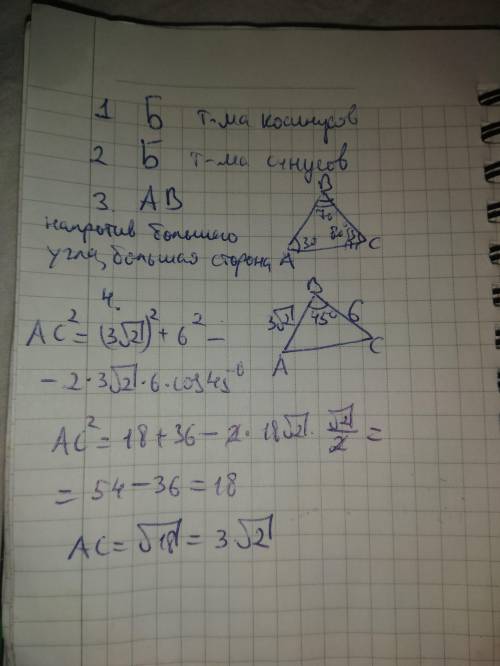 1 Б т-ма косинусов
2 Б т-ма синусов
3. АВ
напротив большего
угла, большая сторона
B
70
30
80
A
C
4.
AC² = (3√2)² + 6² –
– 2·3√2·6·cos45°
B
3√2
45°
6
A
C
AC² = 18 + 36 – 2·18√2·√2/2 =
= 54 – 36 = 18
AC = √18 = 3√2